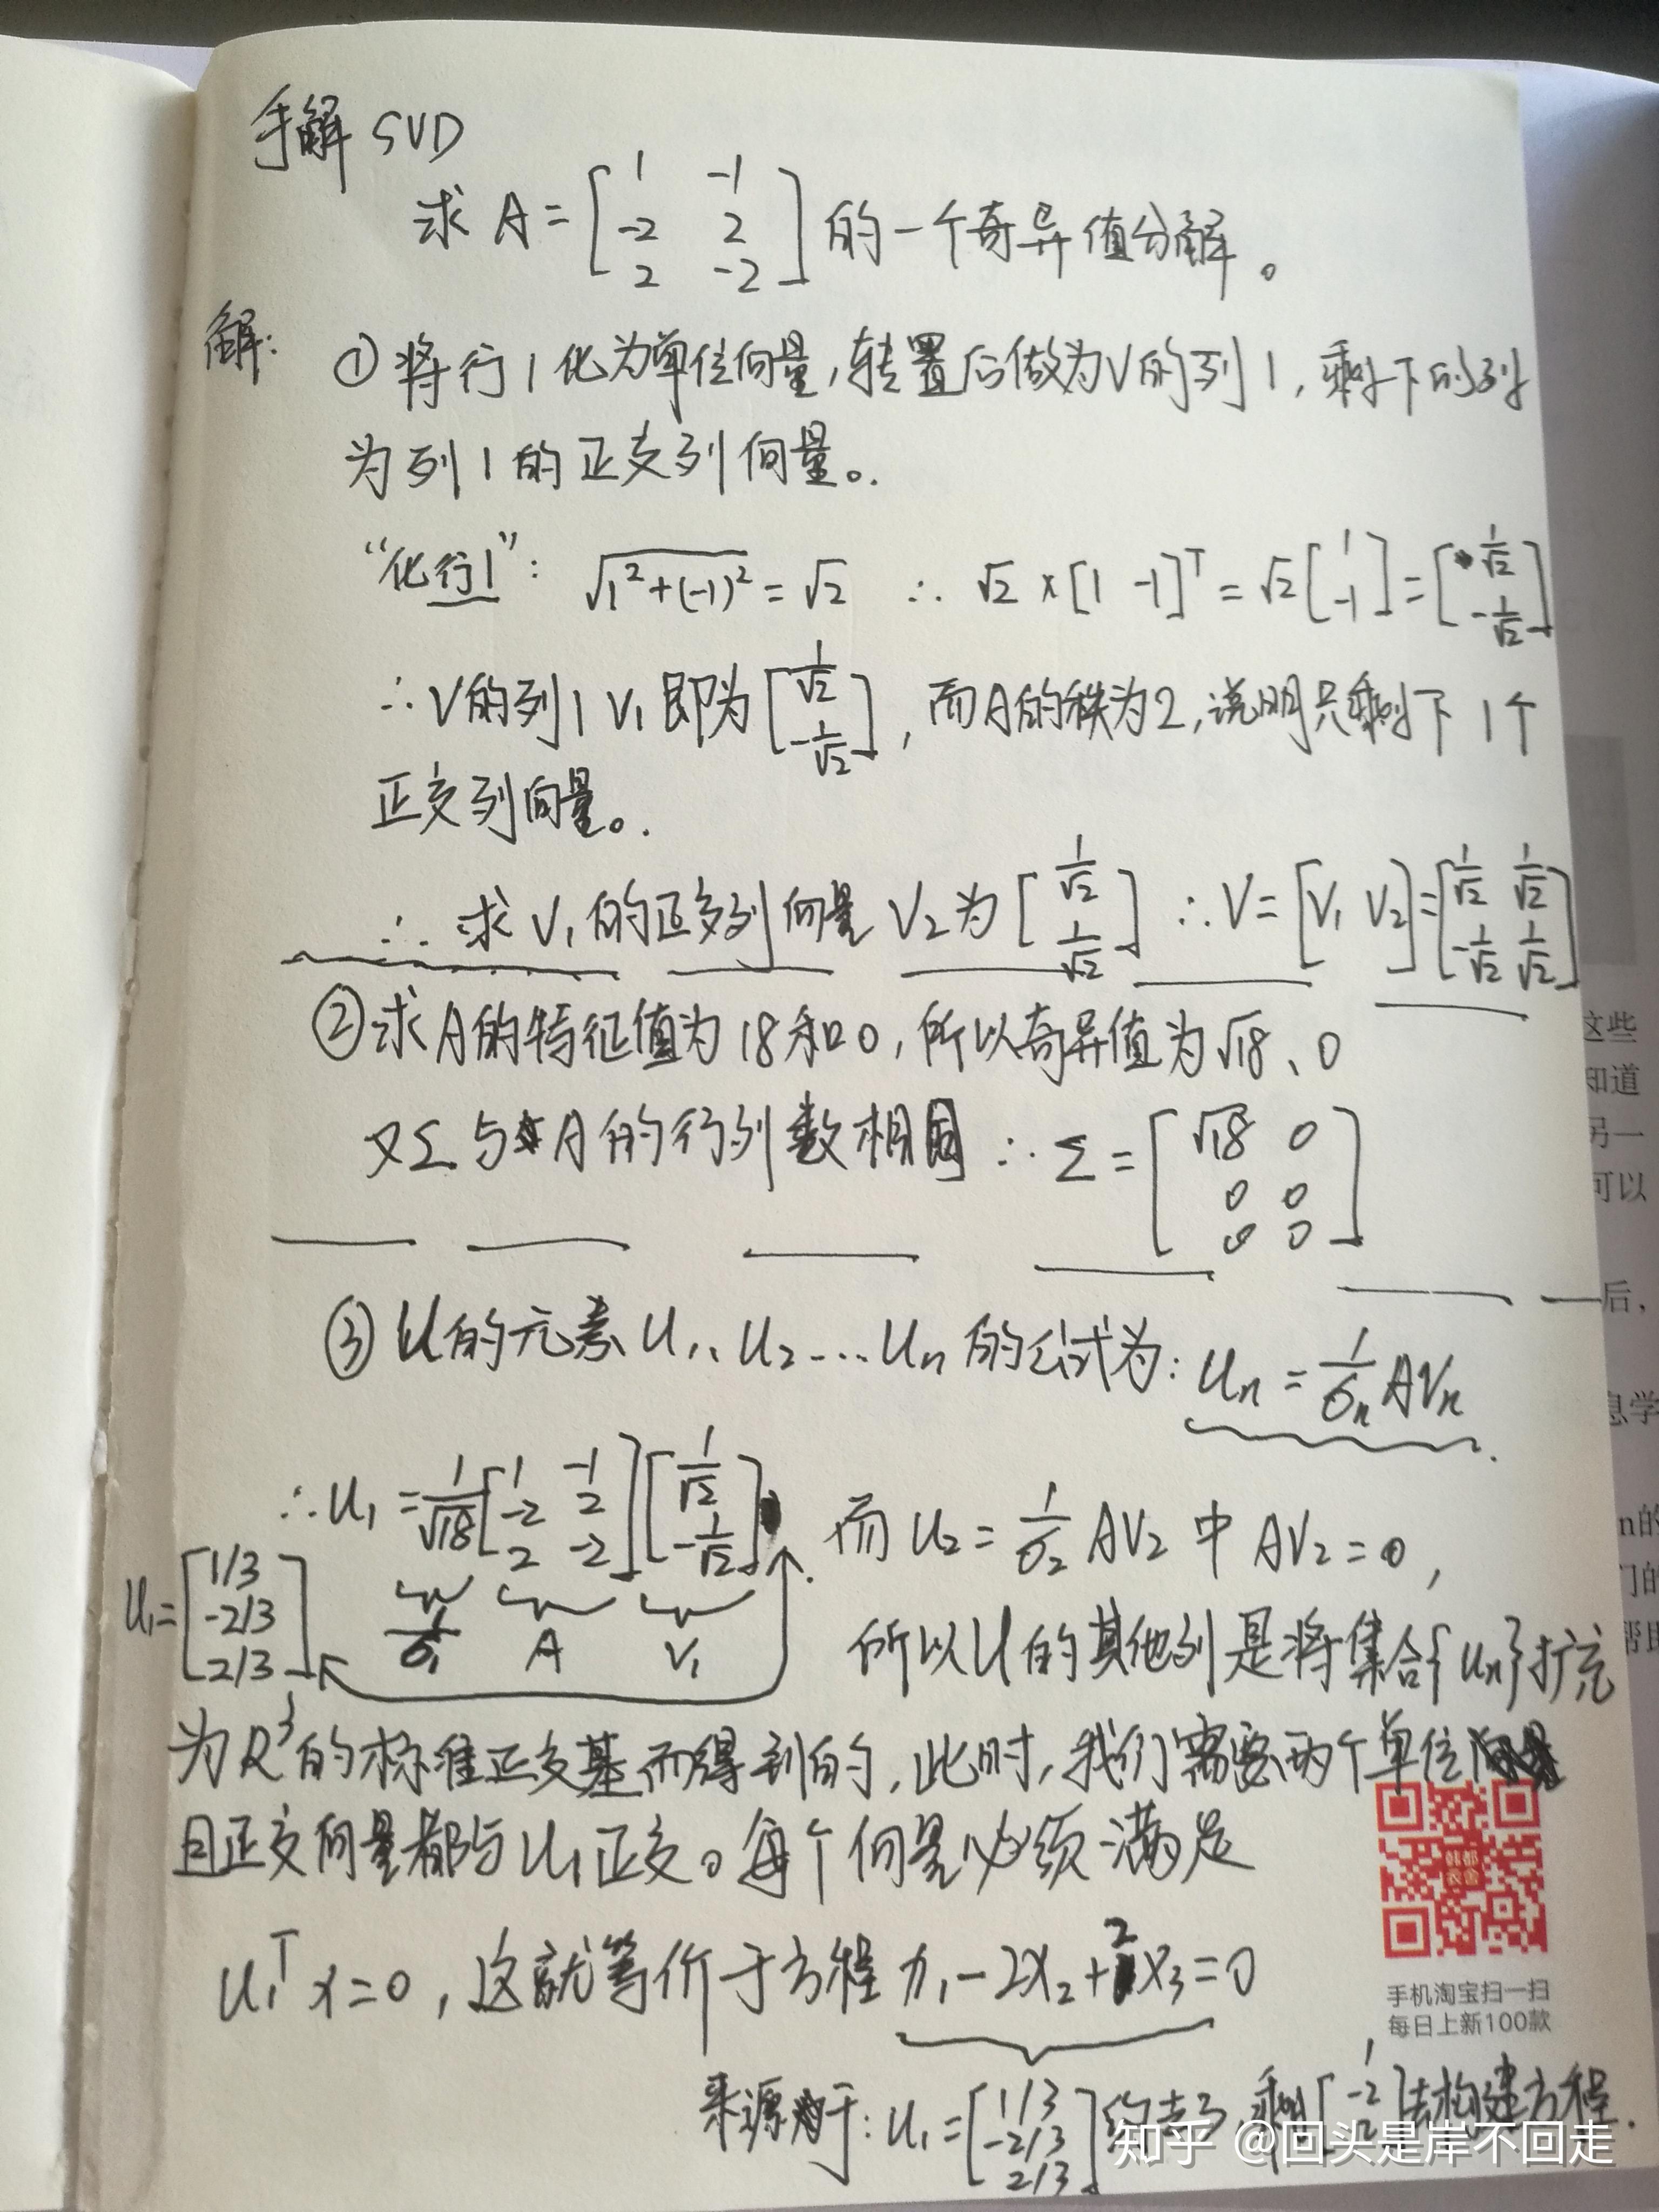 手解 SVD
求 A = [1 -1; -2 2; 2 -2] 的一个奇异值分解。
解: ① 将行1化为单位向量,转置后做为V的列1,剩下的列
为列1的正交列向量。
“化行1”: √(1²+(-1)²) = √2 ∴ √2 × [1 -1]ᵀ = √2 [1; -1] = [1/√2; -1/√2]
∴ V的列1 V₁ 即为 [1/√2; -1/√2], 而A的秩为2,说明只剩下1个
正交列向量。
∴ 求V₁的正交列向量 V₂为 [1/√2; 1/√2] ∴ V = [V₁ V₂] = [1/√2 1/√2; -1/√2 1/√2]
② 求A的特征值为18和0,所以奇异值为√18、0
又Σ与A的行列数相同 ∴ Σ = [√18 0; 0 0; 0 0]
③ U的元素 U₁、U₂…Uₙ 的公式为: Uₙ = 1/σₙ AVₙ
∴ U₁ = 1/√18 [1 -1; -2 2; 2 -2] [1/√2; -1/√2] 而 U₂ = 1/σ₂ AV₂ 中 AV₂ = 0,
1/σ₁ A V₁
U₁ = [1/3; -2/3; 2/3]
所以U的其他列是将集合{Uₙ}扩充
为R³的标准正交基而得到的,此时,我们需要两个单位
且正交向量都与U₁正交。每个向量必须满足
U₁ᵀx=0, 这就等价于方程 x₁-2x₂+2x₃=0
来源于: U₁ = [1/3; -2/3; 2/3] 约去3, 剩 [1; -2; 2] 去构建方程.
韩都
衣舍
手机淘宝扫一扫
每日上新100款
这些
知道
另一
可以
后,
息学
n的
门的
知乎 @回头是岸不回走